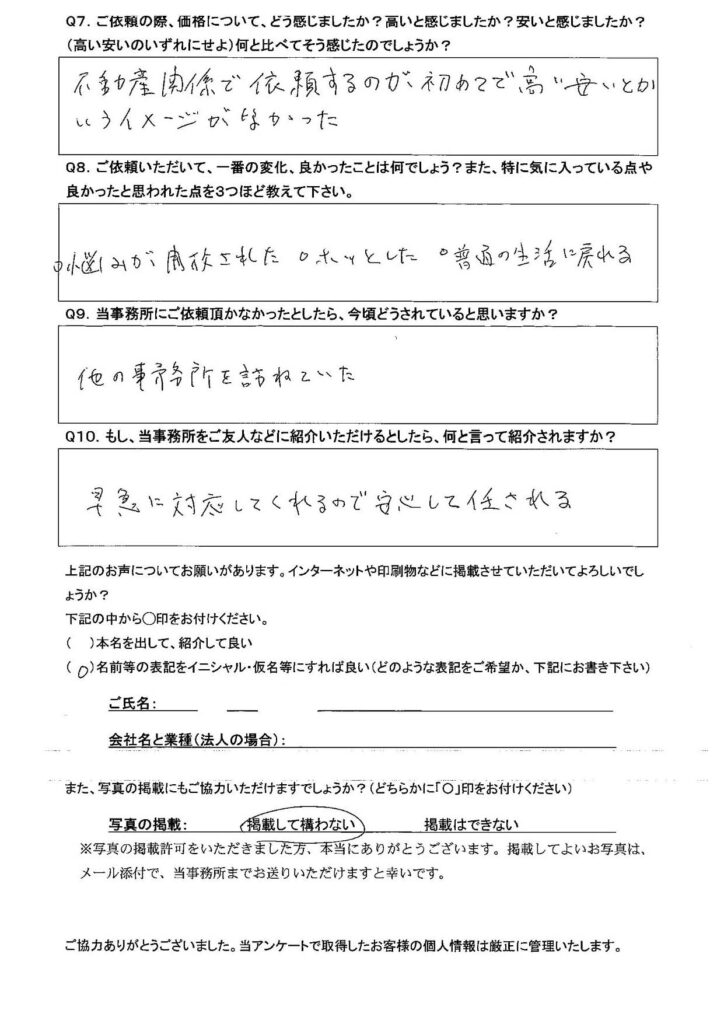 Q7. ご依頼の際、価格について、どう感じましたか？高いと感じましたか？安いと感じましたか？
（高い安いのいずれにせよ）何と比べてそう感じたのでしょうか？
不動産関係で依頼するのが、初めてで高い安いとか
いうイメージがなかった
Q8. ご依頼いただいて、一番の変化、良かったことは何でしょう？また、特に気に入っている点や
良かったと思われた点を3つほど教えて下さい。
○悩みが開放された ○ホッとした ○普通の生活に戻れる
Q9. 当事務所にご依頼頂かなかったとしたら、今頃どうされていると思いますか？
他の事務所を訪ねていた
Q10. もし、当事務所をご友人などに紹介いただけるとしたら、何と言って紹介されますか？
早急に対応してくれるので安心して任される
上記のお声についてお願いがあります。インターネットや印刷物などに掲載させていただいてよろしいでし
ょうか？
下記の中から○印をお付けください。
（　）本名を出して、紹介して良い
（○）名前等の表記をイニシャル・仮名等にすれば良い（どのような表記をご希望か、下記にお書き下さい）
ご氏名：
会社名と業種（法人の場合）：
また、写真の掲載にもご協力いただけますでしょうか？（どちらかに「○」印をお付けください）
写真の掲載： 掲載して構わない 掲載はできない
※写真の掲載許可をいただきました方、本当にありがとうございます。掲載してよいお写真は、
メール添付で、当事務所までお送りいただけますと幸いです。
ご協力ありがとうございました。当アンケートで取得したお客様の個人情報は厳正に管理いたします。